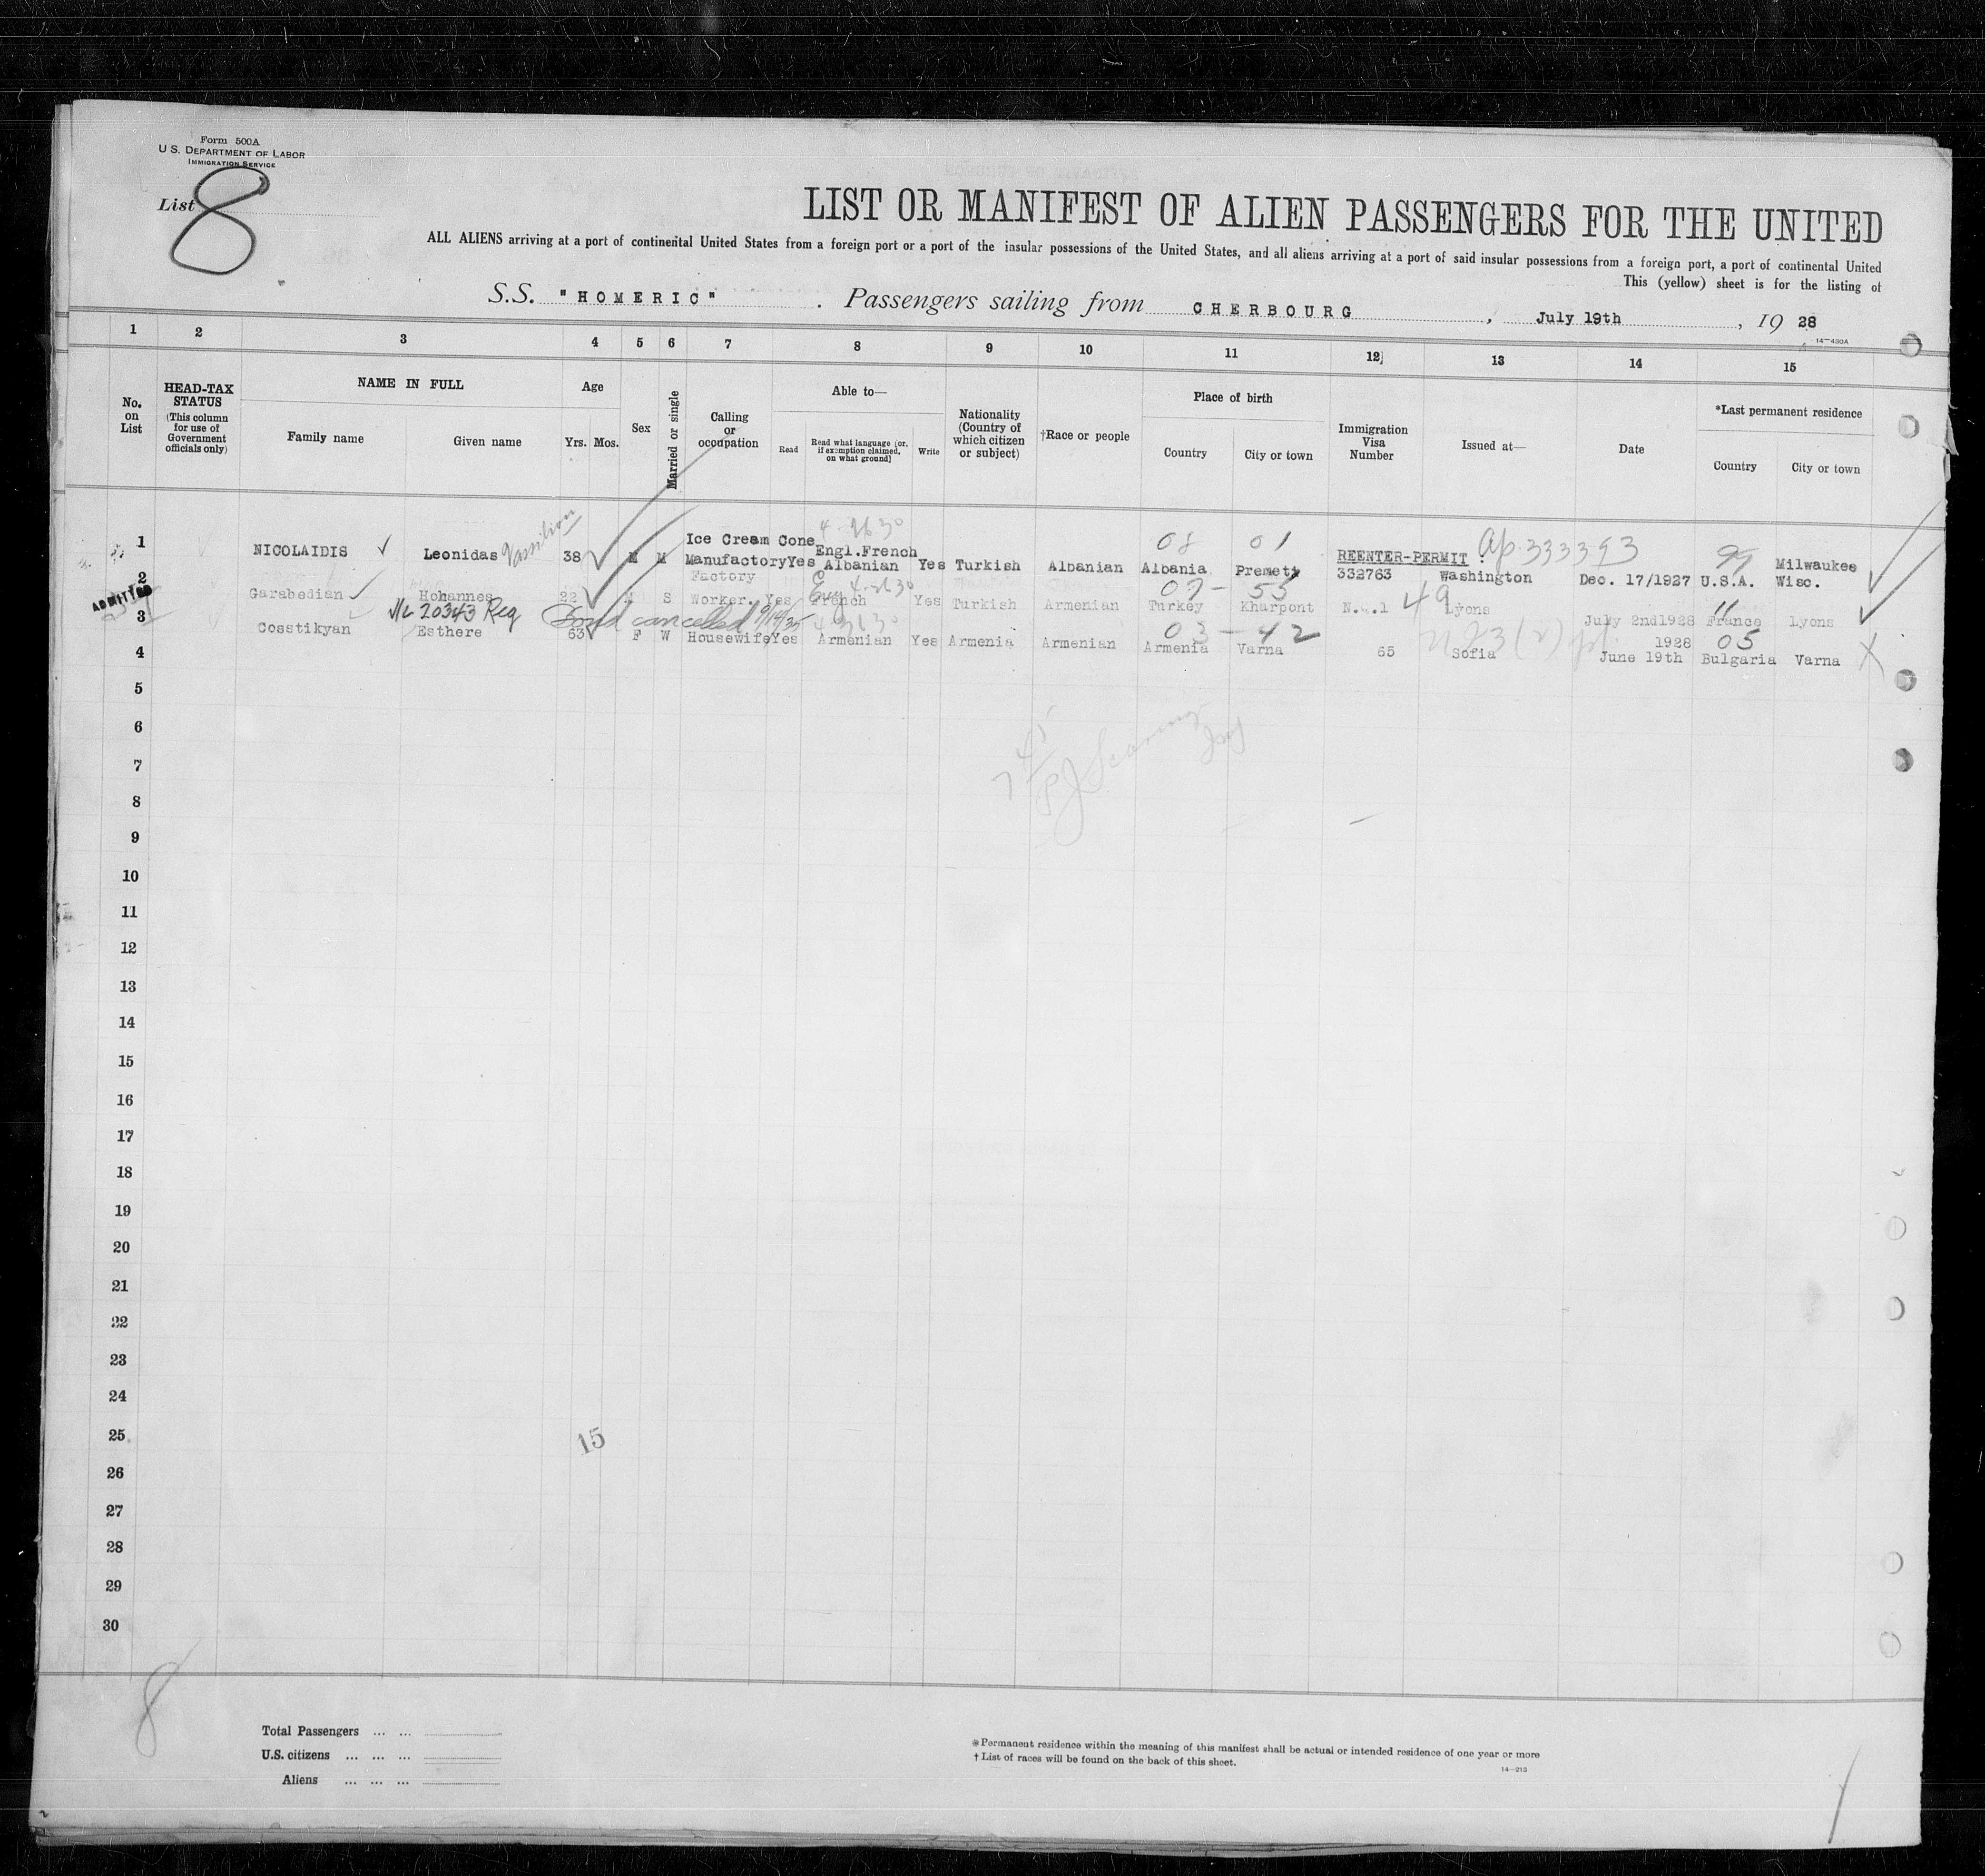 Form 500A
U. S. DEPARTMENT OF LABOR
IMMIGRATION SERVICE
List 8
LIST OR MANIFEST OF ALIEN PASSENGERS FOR THE UNITED
ALL ALIENS arriving at a port of continental United States from a foreign port or a port of the insular possessions of the United States, and all aliens arriving at a port of said insular possessions from a foreign port, a port of continental United
This (yellow) sheet is for the listing of
S.S. "HOMERIC" . Passengers sailing from CHERBOURG , July 19th , 19 28
14—430A
1 2 3 4 5 6 7 8 9 10 11 12 13 14 15
No. on List
HEAD-TAX STATUS (This column for use of Government officials only)
NAME IN FULL
Family name Given name
Age
Yrs. Mos.
Sex
Married or single
Calling or occupation
Able to—
Read Read what language (or, if exemption claimed, on what ground) Write
Nationality (Country of which citizen or subject)
†Race or people
Place of birth
Country City or town
Immigration Visa Number
Issued at—
Date
*Last permanent residence
Country City or town
4-2630
1 NICOLAIDIS Leonidas Vassilion 38 M M Ice Cream Cone Manufactory Yes Engl.French Albanian Yes Turkish Albanian 08 Albania 01 Premett REENTER-PERMIT 332763 Washington ap.333393 Dec. 17/1927 99 U.S.A. Milwaukee Wisc.
2 Garabedian Hohannes 22 M S Factory Worker. Yes Eng 4-2630 French Yes Turkish Armenian 07- Turkey 55 Kharpont N.Q.1 49 Lyons July 2nd1928 11 France Lyons
ADMITTED
NL 20343 Req Bond cancelled 9/14/35
3 Cosstikyan Esthere 63 F W Housewife Yes Armenian Yes Armenia Armenian 03- Armenia 42 Varna 65 Sofia 1928 June 19th 05 Bulgaria Varna
4
5
6
7
8
9
10
11
12
13
14
15
16
17
18
19
20
21
22
23
24
25
15
26
27
28
29
30
8
Total Passengers ... ...
U.S. citizens ... ... ...
Aliens ... ... ...
*Permanent residence within the meaning of this manifest shall be actual or intended residence of one year or more
† List of races will be found on the back of this sheet.
14—213